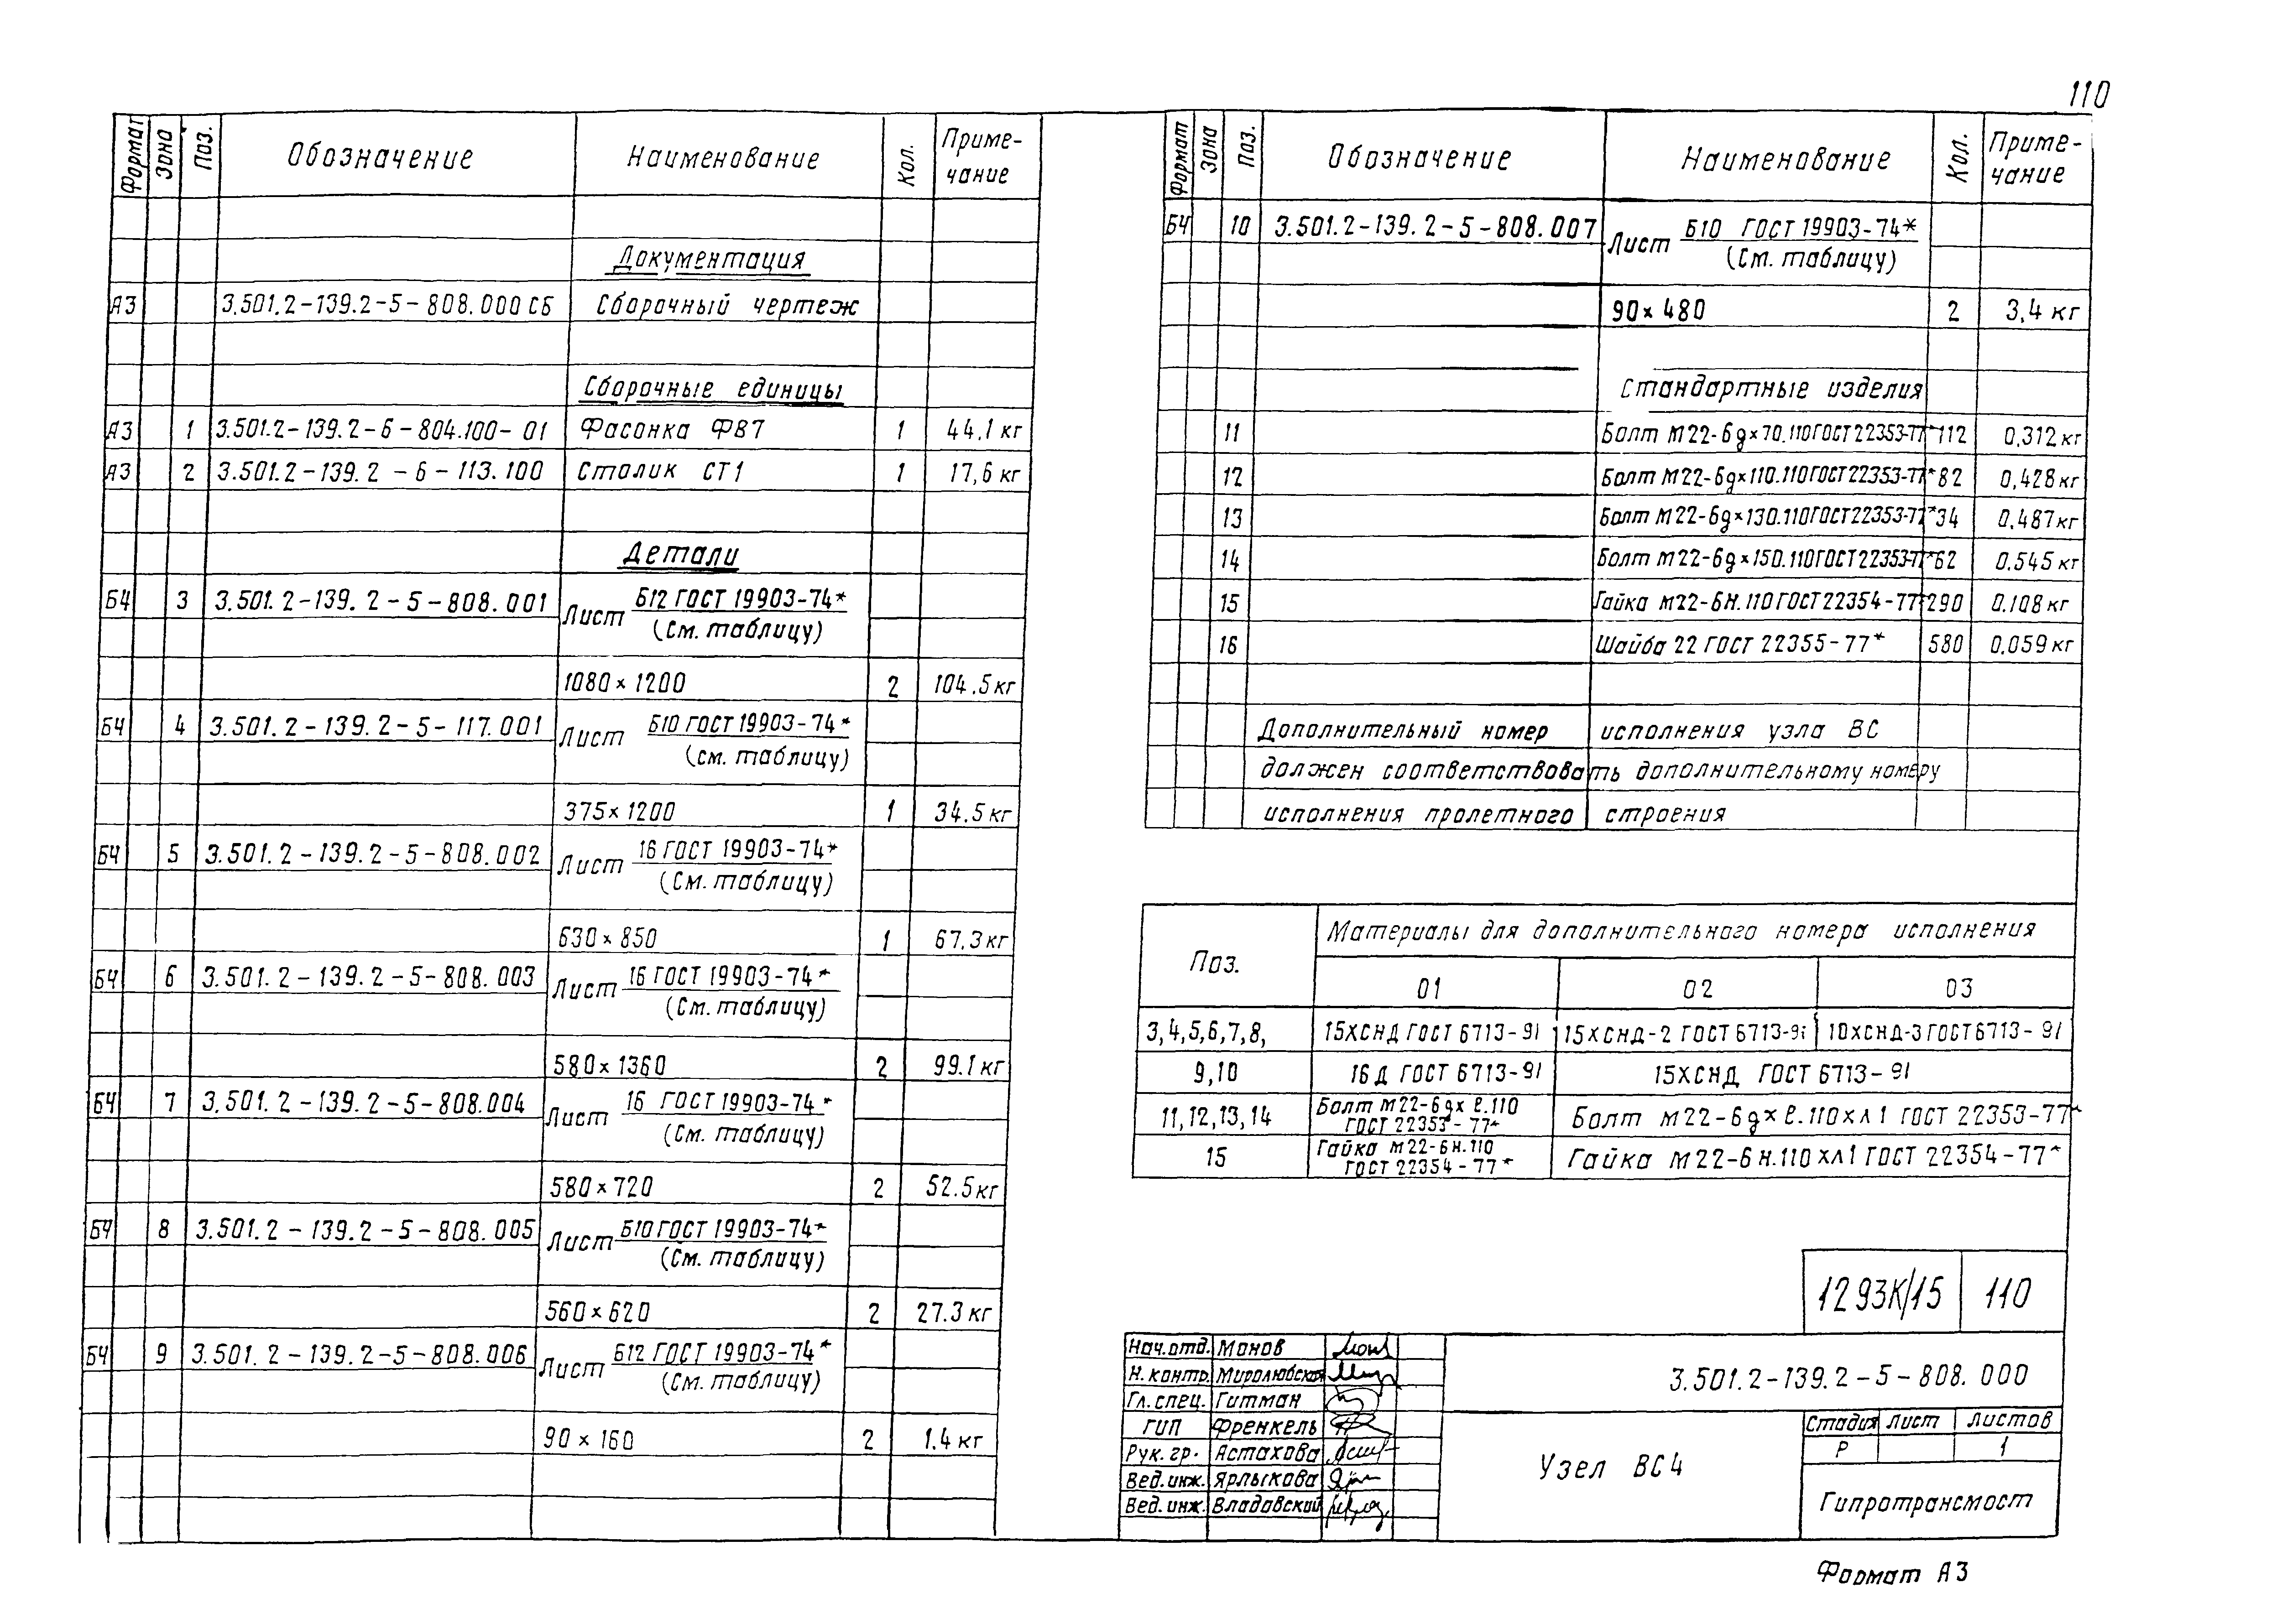 110
Формат Зона Поз. Обозначение Наименование Кол. Приме-
чание
Документация
А3 3.501.2-139.2-5-808.000 СБ Сборочный чертеж
Сборочные единицы
А3 1 3.501.2-139.2-6-804.100-01 Фасонка ФВ7 1 44,1 кг
А3 2 3.501.2-139.2-6-113.100 Столик СТ1 1 17,6 кг
Детали
БЧ 3 3.501.2-139.2-5-808.001 Лист Б12 ГОСТ 19903-74*
(См. таблицу)
1080×1200 2 104.5 кг
БЧ 4 3.501.2-139.2-5-117.001 Лист Б10 ГОСТ 19903-74*
(см. таблицу)
375×1200 1 34.5 кг
БЧ 5 3.501.2-139.2-5-808.002 Лист 16 ГОСТ 19903-74*
(См. таблицу)
630×850 1 67.3 кг
БЧ 6 3.501.2-139.2-5-808.003 Лист 16 ГОСТ 19903-74*
(См. таблицу)
580×1360 2 99.1 кг
БЧ 7 3.501.2-139.2-5-808.004 Лист 16 ГОСТ 19903-74*
(См. таблицу)
580×720 2 52.5 кг
БЧ 8 3.501.2-139.2-5-808.005 Лист Б10 ГОСТ 19903-74*
(См. таблицу)
560×620 2 27.3 кг
БЧ 9 3.501.2-139.2-5-808.006 Лист Б12 ГОСТ 19903-74*
(См. таблицу)
90×160 2 1.4 кг
Формат Зона Поз. Обозначение Наименование Кол. Приме-
чание
БЧ 10 3.501.2-139.2-5-808.007 Лист Б10 ГОСТ 19903-74*
(См. таблицу)
90×480 2 3,4 кг
Стандартные изделия
11 Болт М22-6g×70.110 ГОСТ 22353-77* 112 0,312 кг
12 Болт М22-6g×110.110 ГОСТ 22353-77* 82 0,428 кг
13 Болт М22-6g×130.110 ГОСТ 22353-77* 34 0.487 кг
14 Болт М22-6g×150.110 ГОСТ 22353-77* 62 0.545 кг
15 Гайка М22-6Н.110 ГОСТ 22354-77* 290 0.108 кг
16 Шайба 22 ГОСТ 22355-77* 580 0.059 кг
Дополнительный номер исполнения узла ВС
должен соответствовать дополнительному номеру
исполнения пролетного строения
Поз. Материалы для дополнительного номера исполнения
01 02 03
3,4,5,6,7,8, 15ХСНД ГОСТ 6713-91 15ХСНД-2 ГОСТ 6713-91 10ХСНД-3 ГОСТ 6713-91
9,10 16Д ГОСТ 6713-91 15ХСНД ГОСТ 6713-91
11,12,13,14 Болт М22-6g× ℓ.110
ГОСТ 22353-77* Болт М22-6g× ℓ.110ХЛ1 ГОСТ 22353-77*
15 Гайка М22-6Н.110
ГОСТ 22354-77* Гайка М22-6Н.110ХЛ1 ГОСТ 22354-77*
1293К/15 110
Нач.отд. Монов
Н.контр. Миролюбская
Гл.спец. Гитман
ГИП Френкель
Рук.гр. Астахова
Вед.инж. Ярлыкова
Вед.инж. Владавский
3.501.2-139.2-5-808.000
Узел ВС4
Стадия Лист Листов
Р 1
Гипротрансмост
Формат А3